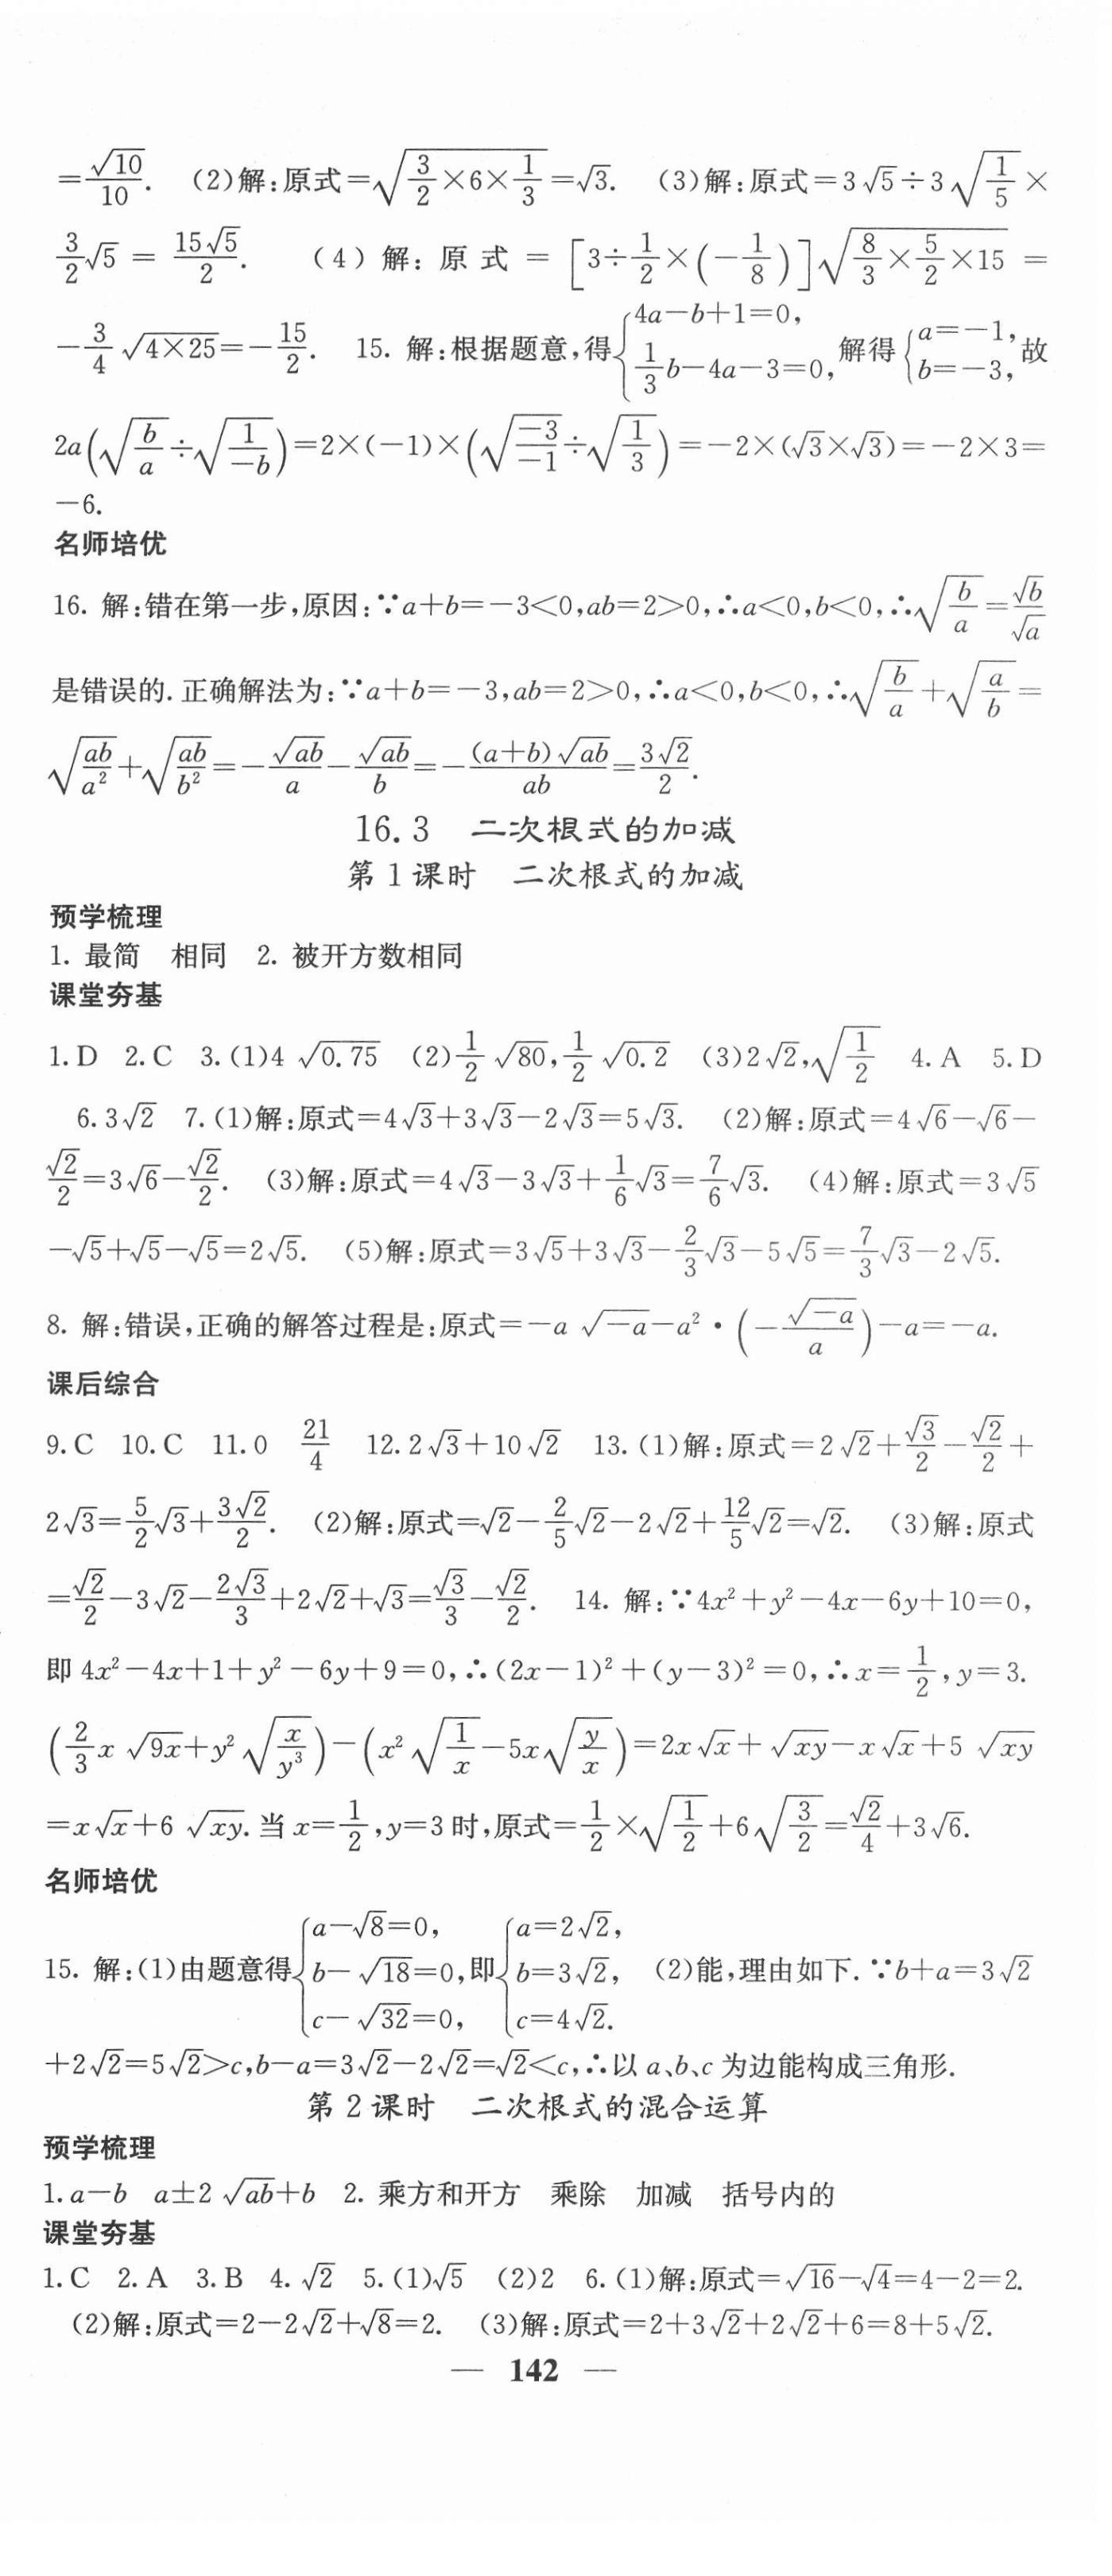 =√10/10. (2)解:原式=√(3/2×6×1/3)=√3. (3)解:原式=3√5÷3√(1/5)×
3/2√5=15√5/2. (4)解:原式=[3÷1/2×(-1/8)]√(8/3×5/2×15)=
-3/4√(4×25)=-15/2. 15. 解:根据题意,得{4a-b+1=0, 1/3b-4a-3=0,解得{a=-1, b=-3,故
2a(√(b/a)÷√(1/-b))=2×(-1)×(√(-3/-1)÷√(1/3))=-2×(√3×√3)=-2×3=
-6.
名师培优
16. 解:错在第一步,原因:∵a+b=-3<0,ab=2>0,∴a<0,b<0,∴√(b/a)=√b/√a
是错误的.正确解法为:∵a+b=-3,ab=2>0,∴a<0,b<0,∴√(b/a)+√(a/b)=
√(ab/a²)+√(ab/b²)=-√ab/a-√ab/b=-(a+b)√ab/ab=3√2/2.
16.3 二次根式的加减
第1课时 二次根式的加减
预学梳理
1. 最简 相同 2. 被开方数相同
课堂夯基
1.D 2.C 3.(1)4√0.75 (2)1/2√80,1/2√0.2 (3)2√2,√(1/2) 4.A 5.D
6.3√2 7.(1)解:原式=4√3+3√3-2√3=5√3. (2)解:原式=4√6-√6-
√2/2=3√6-√2/2. (3)解:原式=4√3-3√3+1/6√3=7/6√3. (4)解:原式=3√5
-√5+√5-√5=2√5. (5)解:原式=3√5+3√3-2/3√3-5√5=7/3√3-2√5.
8. 解:错误,正确的解答过程是:原式=-a√(-a)-a²·(-√(-a)/a)-a=-a.
课后综合
9.C 10.C 11.0 21/4 12.2√3+10√2 13.(1)解:原式=2√2+√3/2-√2/2+
2√3=5/2√3+3√2/2. (2)解:原式=√2-2/5√2-2√2+12/5√2=√2. (3)解:原式
=√2/2-3√2-2√3/3+2√2+√3=√3/3-√2/2. 14. 解:∵4x²+y²-4x-6y+10=0,
即4x²-4x+1+y²-6y+9=0,∴(2x-1)²+(y-3)²=0,∴x=1/2,y=3.
(2/3x√9x+y²√(x/y³))-(x²√(1/x)-5x√(y/x))=2x√x+√xy-x√x+5√xy
=x√x+6√xy.当x=1/2,y=3时,原式=1/2×√(1/2)+6√(3/2)=√2/4+3√6.
名师培优
15. 解:(1)由题意得{a-√8=0, b-√18=0, c-√32=0,即{a=2√2, b=3√2, c=4√2. (2)能,理由如下.∵b+a=3√2
+2√2=5√2>c,b-a=3√2-2√2=√2<c,∴以a、b、c为边能构成三角形.
第2课时 二次根式的混合运算
预学梳理
1.a-b a±2√ab+b 2. 乘方和开方 乘除 加减 括号内的
课堂夯基
1.C 2.A 3.B 4.√2 5.(1)√5 (2)2 6.(1)解:原式=√16-√4=4-2=2.
(2)解:原式=2-2√2+√8=2. (3)解:原式=2+3√2+2√2+6=8+5√2.
— 142 —